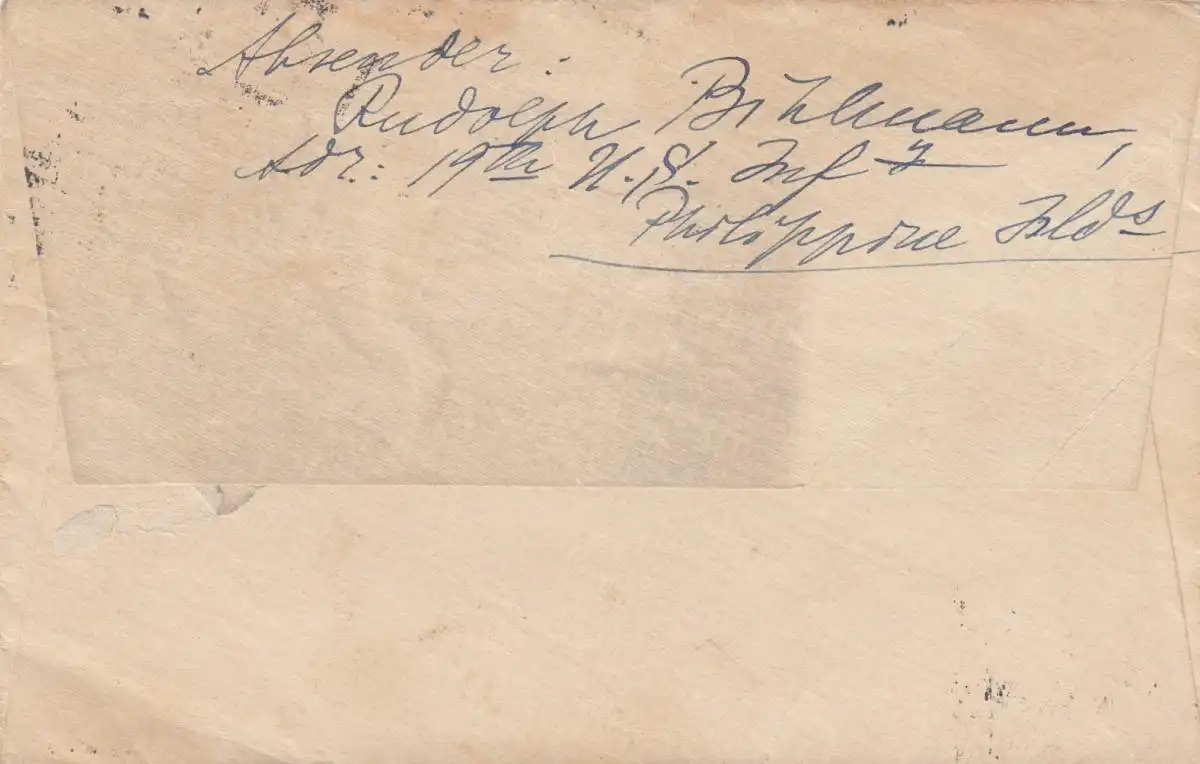 Absender:
Rudolph Bihlmann,
Adr: 19th U.S. Inf y
Philippine Islds